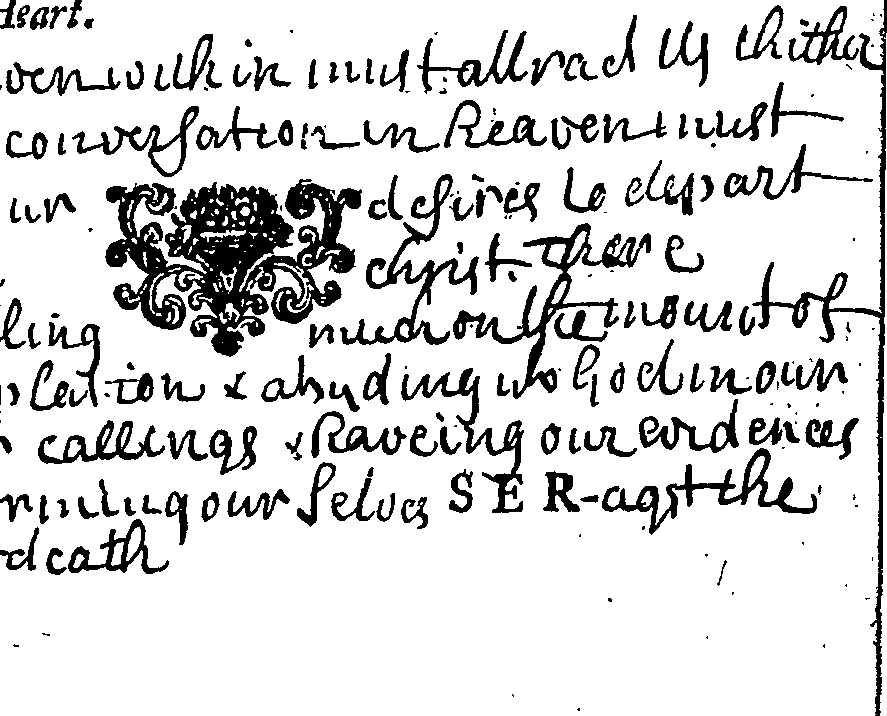 Heart.
ven within must allrad Us thither
conversation in Heaven must
ur desires to depart
christ. There
ling much on the mount of
plation & abyding wth God in our
callings & Haveing our evidences
rming our selves SER-agst the
death